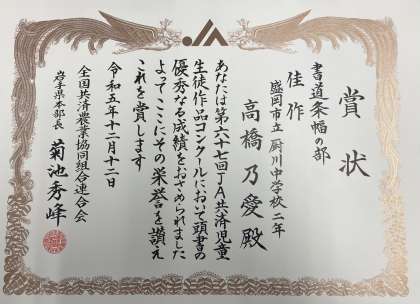 賞状
書道条幅の部
佳作
盛岡市立厨川中学校二年
高橋乃愛殿
あなたは第六十七回JA共済児童
生徒作品コンクールにおいて頭書の
優秀なる成績をおさめられました
よってここにその栄誉を讃え
これを賞します
令和五年十二月十二日
全国共済農業協同組合連合会
岩手県本部長 菊池秀峰